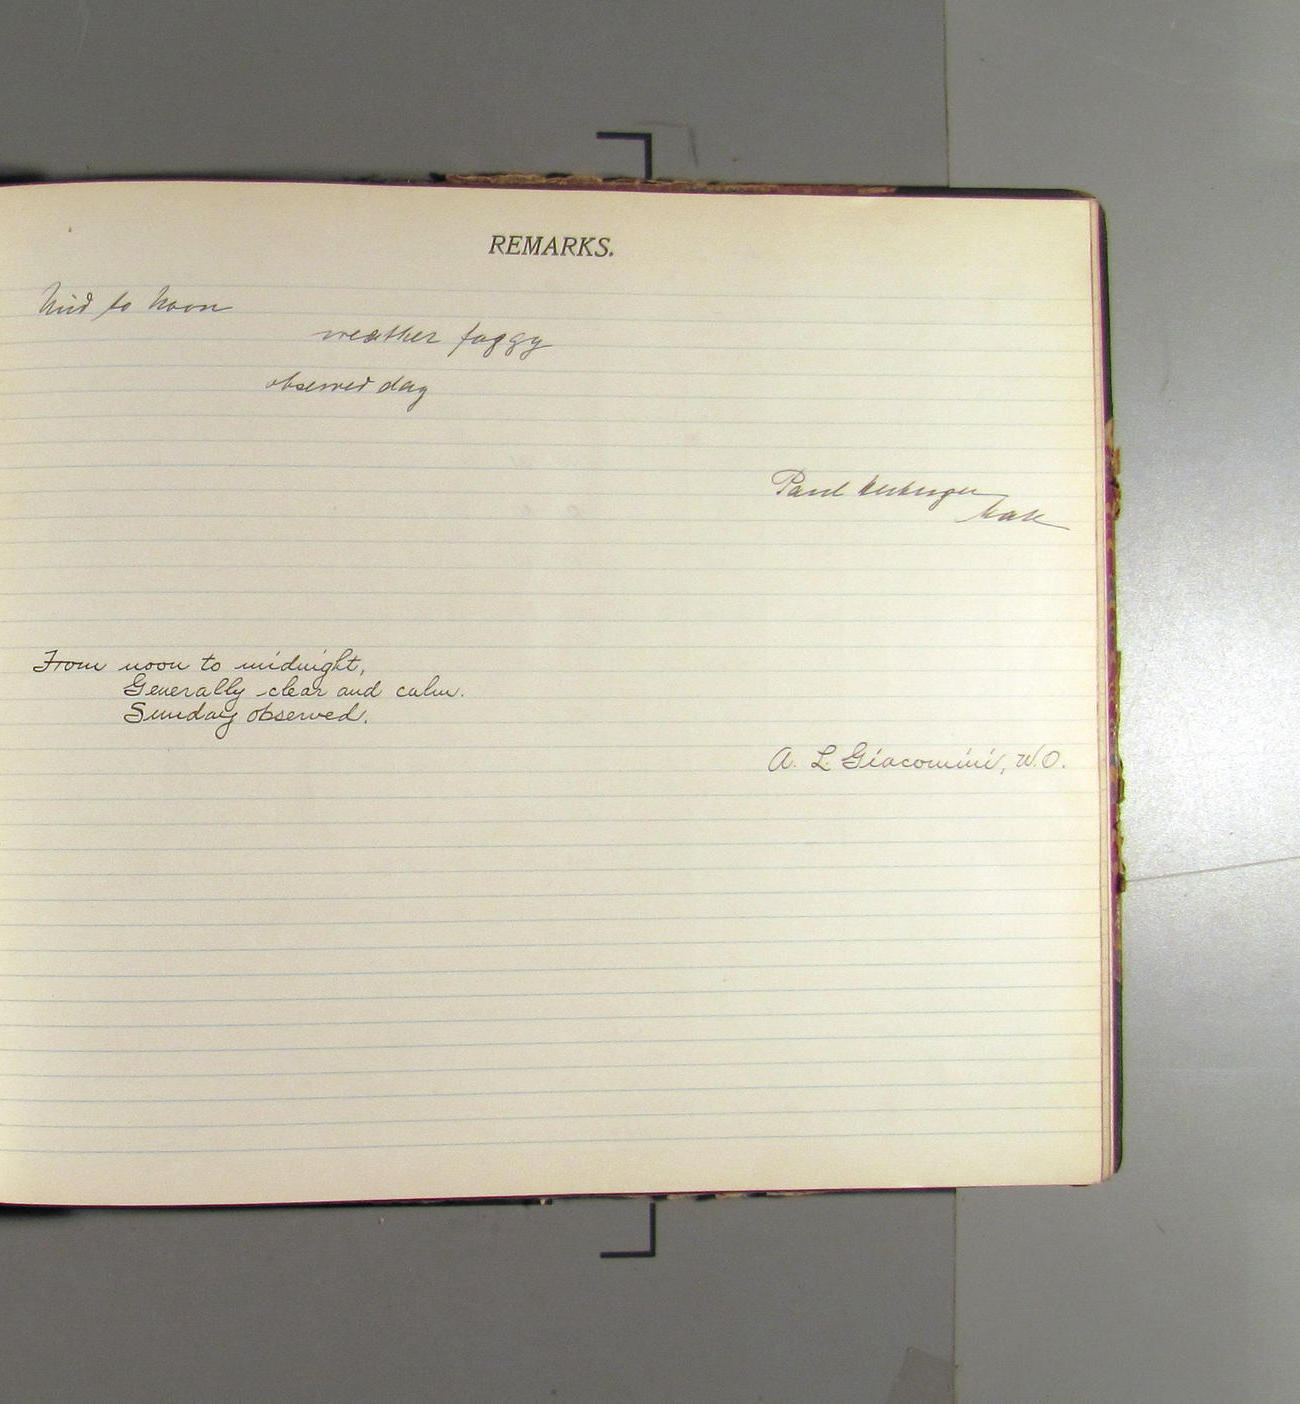 REMARKS.
Mid to Noon
weather foggy
observed day
Paul
Mate
From noon to midnight,
Generally clear and calm.
Sunday observed.
A. L. Giacomini, W.O.